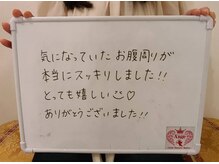 気になっていた お腹周りが
本当にスッキリしました!!
とっても嬉しい☺♡
ありがとうございました!!